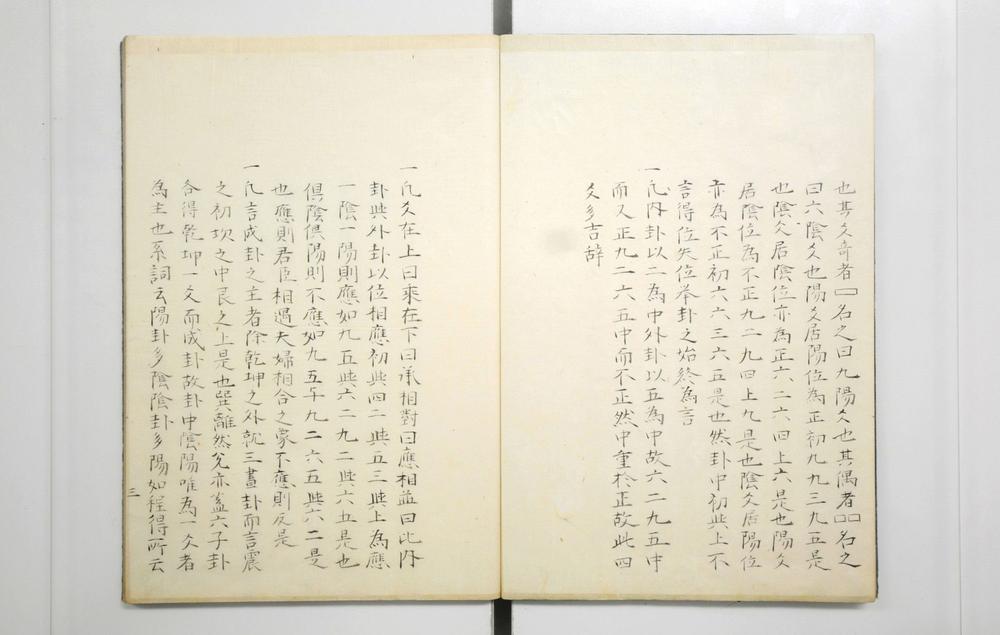 也其爻奇者▭名之曰九陽爻也其偶者▭▭名之
曰六陰爻也陽爻居陽位為正初九九三九五是
也陰爻居陰位亦為正六二六四上六是也陽爻
居陰位為不正九二九四上九是也陰爻居陽位
亦為不正初六六三六五是也然卦中初與上不
言得位失位举卦之始終為言
一凡内卦以二為中外卦以五為中故六二九五中
而又正九二六五中而不正然中重於正故此四
爻多吉辞
一凡爻在上曰乘在下曰承相對曰應相並曰比内
卦與外卦以位相應初與四二與五三與上為應
一陰一陽則應如九五與六二九二與六五是也
俱陰俱陽則不應如九五与九二六五與六二是
也應則君臣相遇夫婦相合之象不應則反是
一凡言成卦之主者除乾坤之外就三畫卦而言震
之初坎之中艮之上是也巽離然兊亦盖六子卦
各得乾坤一爻而成卦故卦中陰陽唯為一爻者
為主也系詞云陽卦多陰陰卦多陽如程得所云
三